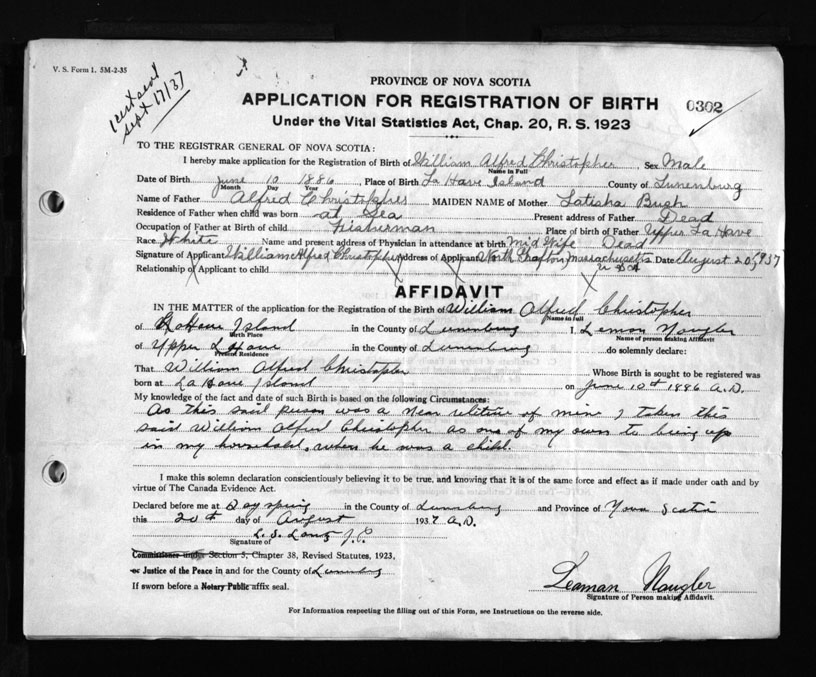 V. S. Form 1. 5M-2-35
1 cert sent
Sept 17/37
PROVINCE OF NOVA SCOTIA
APPLICATION FOR REGISTRATION OF BIRTH 0302
Under the Vital Statistics Act, Chap. 20, R. S. 1923
TO THE REGISTRAR GENERAL OF NOVA SCOTIA:
I hereby make application for the Registration of Birth of William Alfred Christopher, Sex Male
Name in Full
Date of Birth June 10 1886, Place of Birth La Have Island County of Lunenburg
Month Day Year
Name of Father Alfred Christopher MAIDEN NAME of Mother Latisha Bush
Residence of Father when child was born at Sea Present address of Father Dead
Occupation of Father at Birth of child Fisherman Place of birth of Father Upper La Have
Race White Name and present address of Physician in attendance at birth Mid Wife Dead
Signature of Applicant William Alfred Christopher Address of Applicant North Grafton, Massachusetts Date August 20, 1937
Relationship of Applicant to child U S A
AFFIDAVIT
IN THE MATTER of the application for the Registration of the Birth of William Alfred Christopher
Name in full
of La Have Island in the County of Lunenburg I, Lemon Naugler
Birth Place Name of person making Affidavit
of Upper L Have in the County of Lunenburg do solemnly declare:
Present Residence
That William Alfred Christopher Whose Birth is sought to be registered was
born at La Have Island on June 10th 1886 A.D.
My knowledge of the fact and date of such Birth is based on the following Circumstances:
As this said person was a near relitive of mine I taken this
said William Alfred Christopher as one of my own to bring up
in my household, when he was a child.
I make this solemn declaration conscientiously believing it to be true, and knowing that it is of the same force and effect as if made under oath and by
virtue of The Canada Evidence Act.
Declared before me at Dayspring in the County of Lunenburg and Province of Nova Scotia
this 20th day of August 1937 A.D.
L. S. J. P.
Signature of
Commissioner under Section 5, Chapter 38, Revised Statutes, 1923,
or Justice of the Peace in and for the County of Lunenburg
If sworn before a Notary Public affix seal.
Leaman Naugler
Signature of Person making Affidavit.
For Information respecting the filling out of this Form, see Instructions on the reverse side.